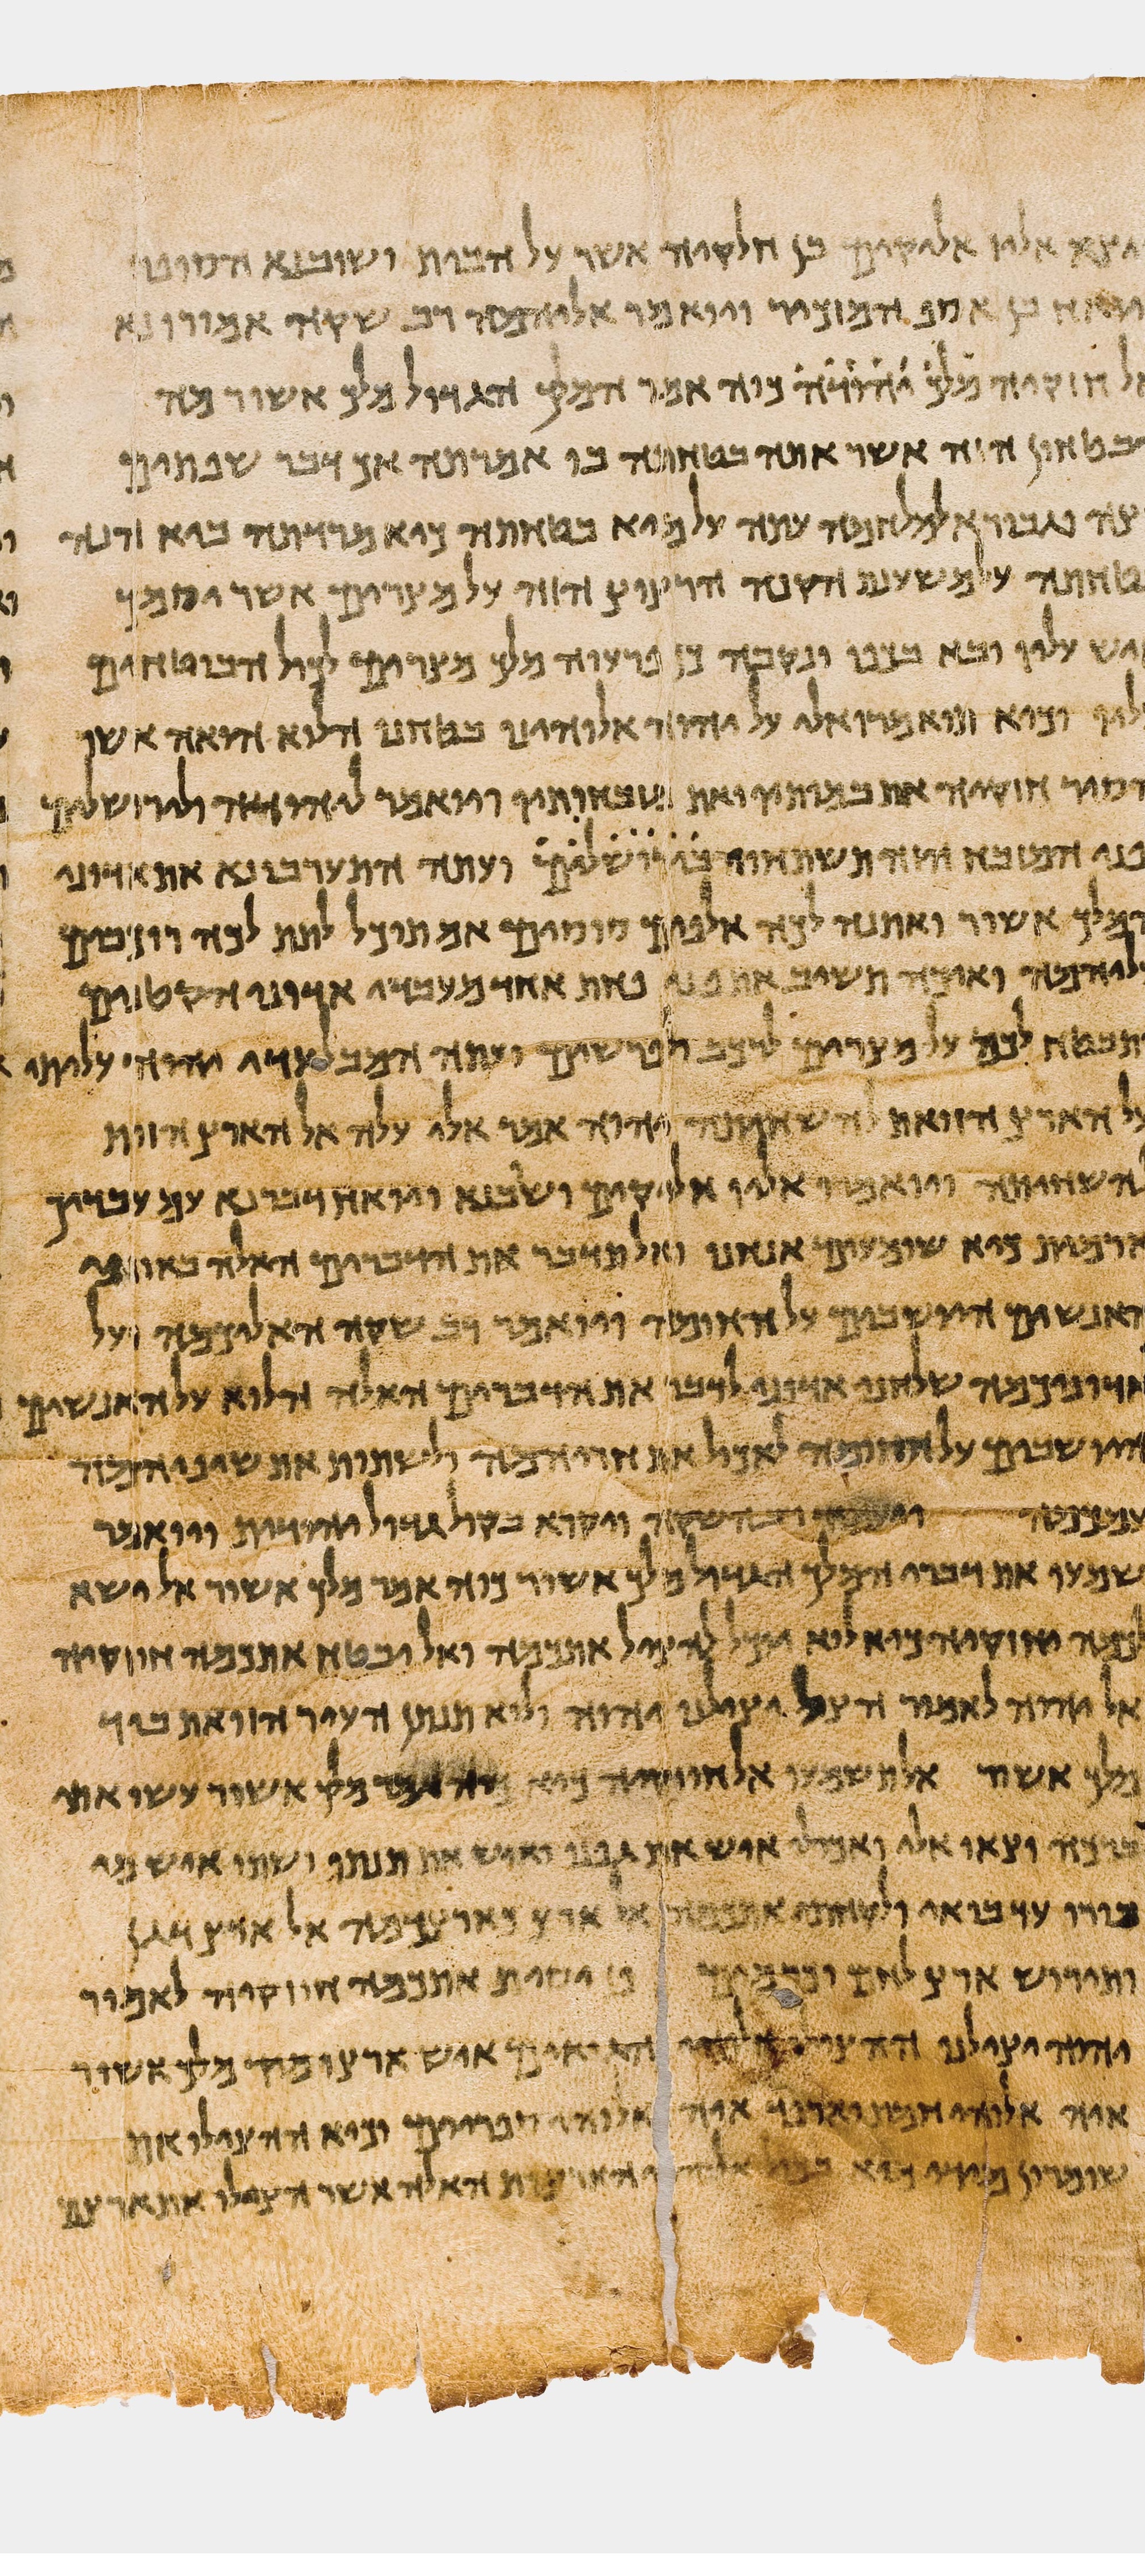 ויצא אליו אליקים בן חלקיה אשר על הבית ושובנא הסופר
ויואח בן אסף המזכיר ויואמר אליהמה רב שקה אמורו נא
אל חזקיה מלך יהודה כוה אמר המלך הגדול מלך אשור מה
הבטחון הזה אשר אתה בטחתה בו אמרתה אך דבר שפתים
עצה וגבורא למלחמה עתה על מיא בטחתה כיא מרדתה ביא הנה
בטחתה על משענת הקנה הרצוץ הזה על מצרים אשר יסמך
איש עליו ובא בכפו ונקבה כן פרעוה מלך מצרים לכול הבוטחים
עליו וכיא תואמרו אלי על יהוה אלוהינו בטחנו הלוא הואה אשר
הסיר חזקיה את במותיו ואת מזבחותיו ויואמר ליהודה ולירושלים
לפני המזבח הזה תשתחוו בירושלים ועתה התערבו נא את אדוני
המלך אשור ואתנה לכה אלפים סוסים אם תוכל לתת לכה רוכבים
עליהמה ואיכה תשיב את פני פחת אחד מעבדי אדוני הקטנים
ותבטח לכה על מצרים לרכב ולפרשים ועתה המבלעדי יהוה עליתי
על הארץ הזואת להשחיתה יהוה אמר אלי עלה אל הארץ הזות
להשחיתה ויואמרו אליו אליקים ושבנא ויואח דבר נא עם עבדיך
ארמית כיא שומעים אנחנו ואל תדבר את הדברים האלה באוזני
האנשים היושבים על החומה ויואמר רב שקה האליכמה ועל
אדוניכמה שלחני אדוני לדבר את הדברים האלה הלוא על האנשים
היושבים על החומה לאכול את חריהמה ולשתות את שיניהמה
עמכמה ויעמוד רב שקה ויקרא בקול גדול יהודית ויואמר
שמעו את דברי המלך הגדול מלך אשור כוה אמר מלך אשור אל ישא
לכמה חזקיה כיא לוא יוכל להציל אתכמה ואל יבטח אתכמה חזקיה
אל יהוה לאמור הצל יצילנו יהוה ולוא תנתן העיר הזואת ביד
מלך אשור אל תשמעו אל חזקיה כיא כוה אמר מלך אשור עשו אתי
ברכה וצאו אלי ואכולו איש את גפנו ואיש את תנתו ושתו איש מי
בורו עד בואי ולקחתי אתכמה אל ארץ כארצכמה אל ארץ דגן
ותירוש ארץ לחם וכרמים פן יסית אתכמה חזקיה לאמור
יהוה יצילנו ההצילו אלוהי הגואים איש ארצו מיד מלך אשור
איה אלוהי חמת וארפד איה אלוהי ספריים וכיא ההצילו את
שומרון מידי מיא בכול אלוהי הארצות האלה אשר הצילו את ארצם